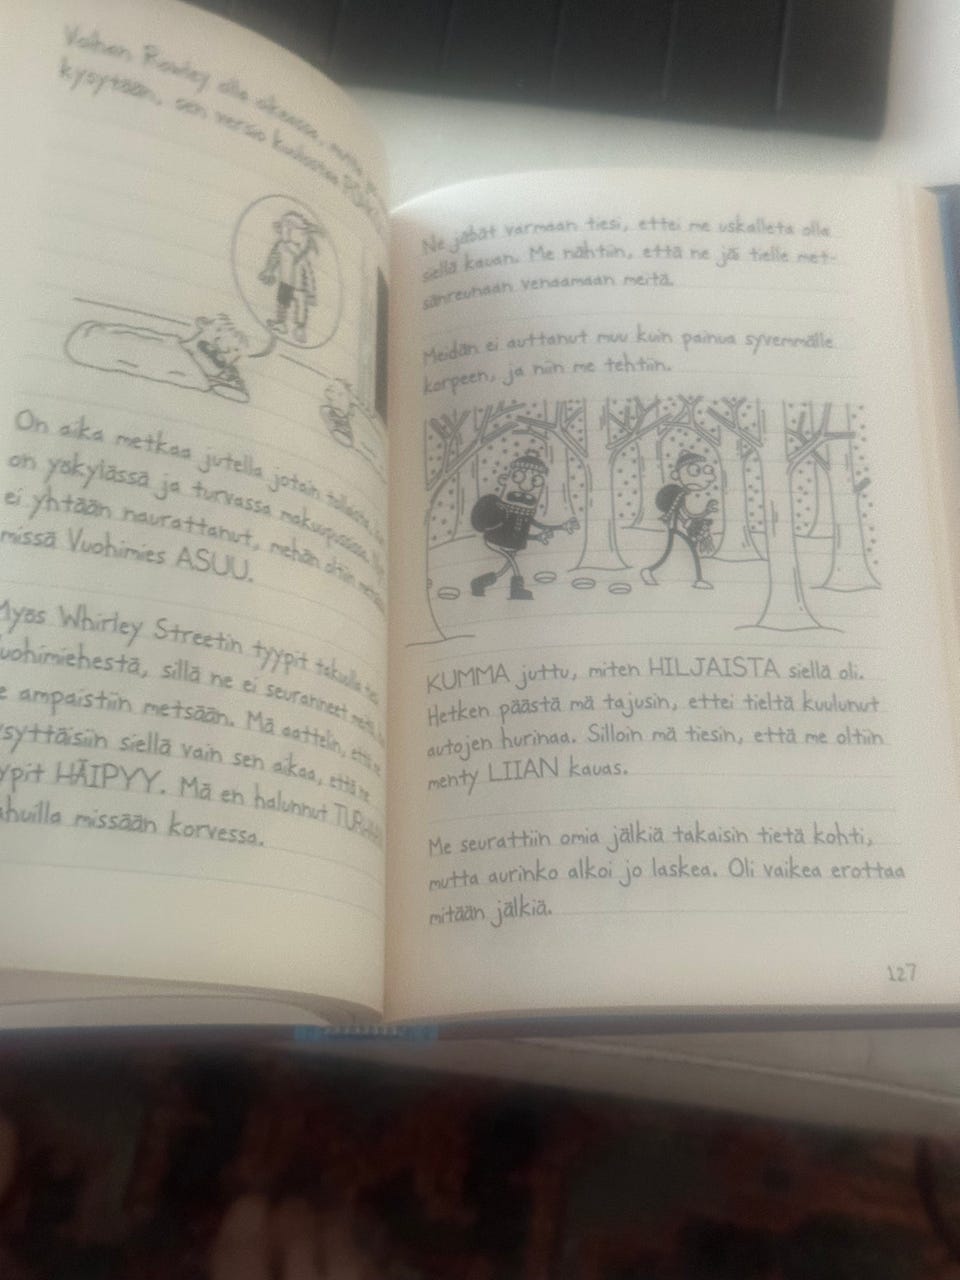 Vaihan Rowley olla oikeassa, mutta
kysytään, sen versio kuulostaa
On aika metkaa jutella jotain
on yökylässä ja turvassa makuupussissa.
ei yhtään naurattanut, mehän oltiin
missä Vuohimies ASUU.
Myös Whirley Streetin tyypit takuulla
uohimiehestä, sillä ne ei seuranneet
e ampaistiin metsään. Mä aattelin, että
syttäisiin siellä vain sen aikaa, että ne
ypit HÄIPYY. Mä en halunnut
huilla missään korvessa.
Ne jäbät varmaan tiesi, ettei me uskalleta olla
siellä kauan. Me nähtiin, että ne jäi tielle met-
sänreunaan venaamaan meitä.
Meidän ei auttanut muu kuin painua syvemmälle
korpeen, ja niin me tehtiin.
KUMMA juttu, miten HILJAISTA siellä oli.
Hetken päästä mä tajusin, ettei tieltä kuulunut
autojen hurinaa. Silloin mä tiesin, että me oltiin
menty LIIAN kauas.
Me seurattiin omia jälkiä takaisin tietä kohti,
mutta aurinko alkoi jo laskea. Oli vaikea erottaa
mitään jälkiä.
127